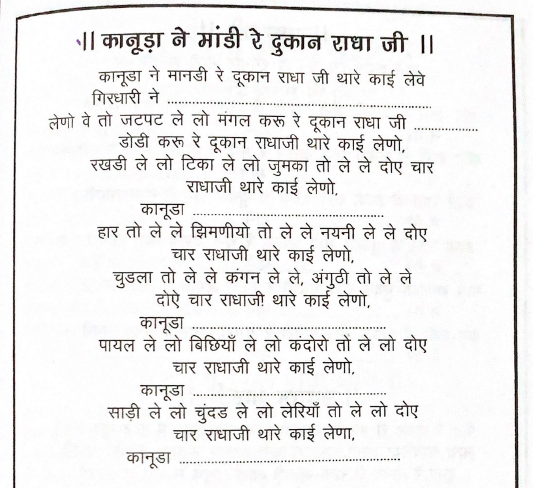 ।। कानूड़ा ने मांडी रे दुकान राधा जी ।।
कानूडा ने मानडी रे दूकान राधा जी थारे काई लेवे
गिरधारी ने ............................................................
लेणो वे तो जटपट ले लो मंगल करू रे दूकान राधा जी ...............
डोडी करू रे दूकान राधाजी थारे काई लेणो,
रखडी ले लो टिका ले लो जुमका तो ले ले दोए चार
राधाजी थारे काई लेणो,
कानूडा ............................................
हार तो ले ले झिमणीयो तो ले ले नयनी ले ले दोए
चार राधाजी थारे काई लेणो,
चुडला तो ले ले कंगन ले ले, अंगुठी तो ले ले
दोऐ चार राधाजी थारे काई लेणो,
कानूडा ............................................
पायल ले लो बिछियाँ ले लो कंदोरो तो ले लो दोए
चार राधाजी थारे काई लेणो,
कानूडा ............................................
साड़ी ले लो चुंदड ले लो लेरियाँ तो ले लो दोए
चार राधाजी थारे काई लेणा,
कानूडा ............................................